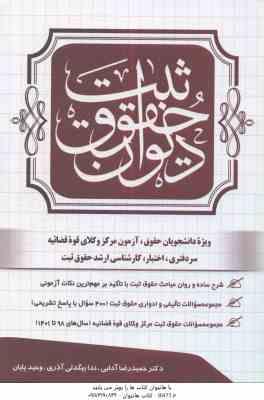 دیوان حقوق ثبت
ویژۀ دانشجویان حقوق، آزمون مرکز وکلای قوۀ قضائیه
سردفتری، اختبار، کارشناسی ارشد حقوق ثبت
شرح ساده و روان مباحث حقوق ثبت با تأکید بر مهم‌ترین نکات آزمونی
مجموعه‌سؤالات تألیفی و ادواری حقوق ثبت (۴۰۰ سؤال با پاسخ تشریحی)
مجموعه‌سؤالات حقوق ثبت مرکز وکلای قوۀ قضائیه (سال‌های ۹۸ تا ۱۴۰۱)
دکتر حمیدرضا آدابی، ندا بیگدلی آذری، وحید پایان
با هانیوان کتاب ها را بهتر می یابید
کتاب هانیوان